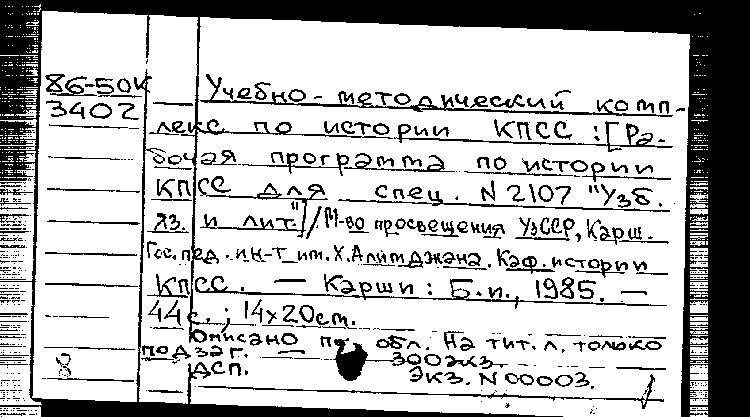 86-50к
3402
Учебно-методический комп-
лекс по истории КПСС : [Ра-
бочая программа по истории
КПСС для спец. N 2107 "Узб.
яз. и лит."] / М-во просвещения УзССР, Карш.
Гос. пед. ин-т им. Х. Алимджана. Каф. истории
КПСС. — Карши : Б.и., 1985. —
44 с. ; 14х20 см.
Описано по обл. На тит. л. только
подзаг. — 300 экз.
ДСП. Экз. N 00003.
8